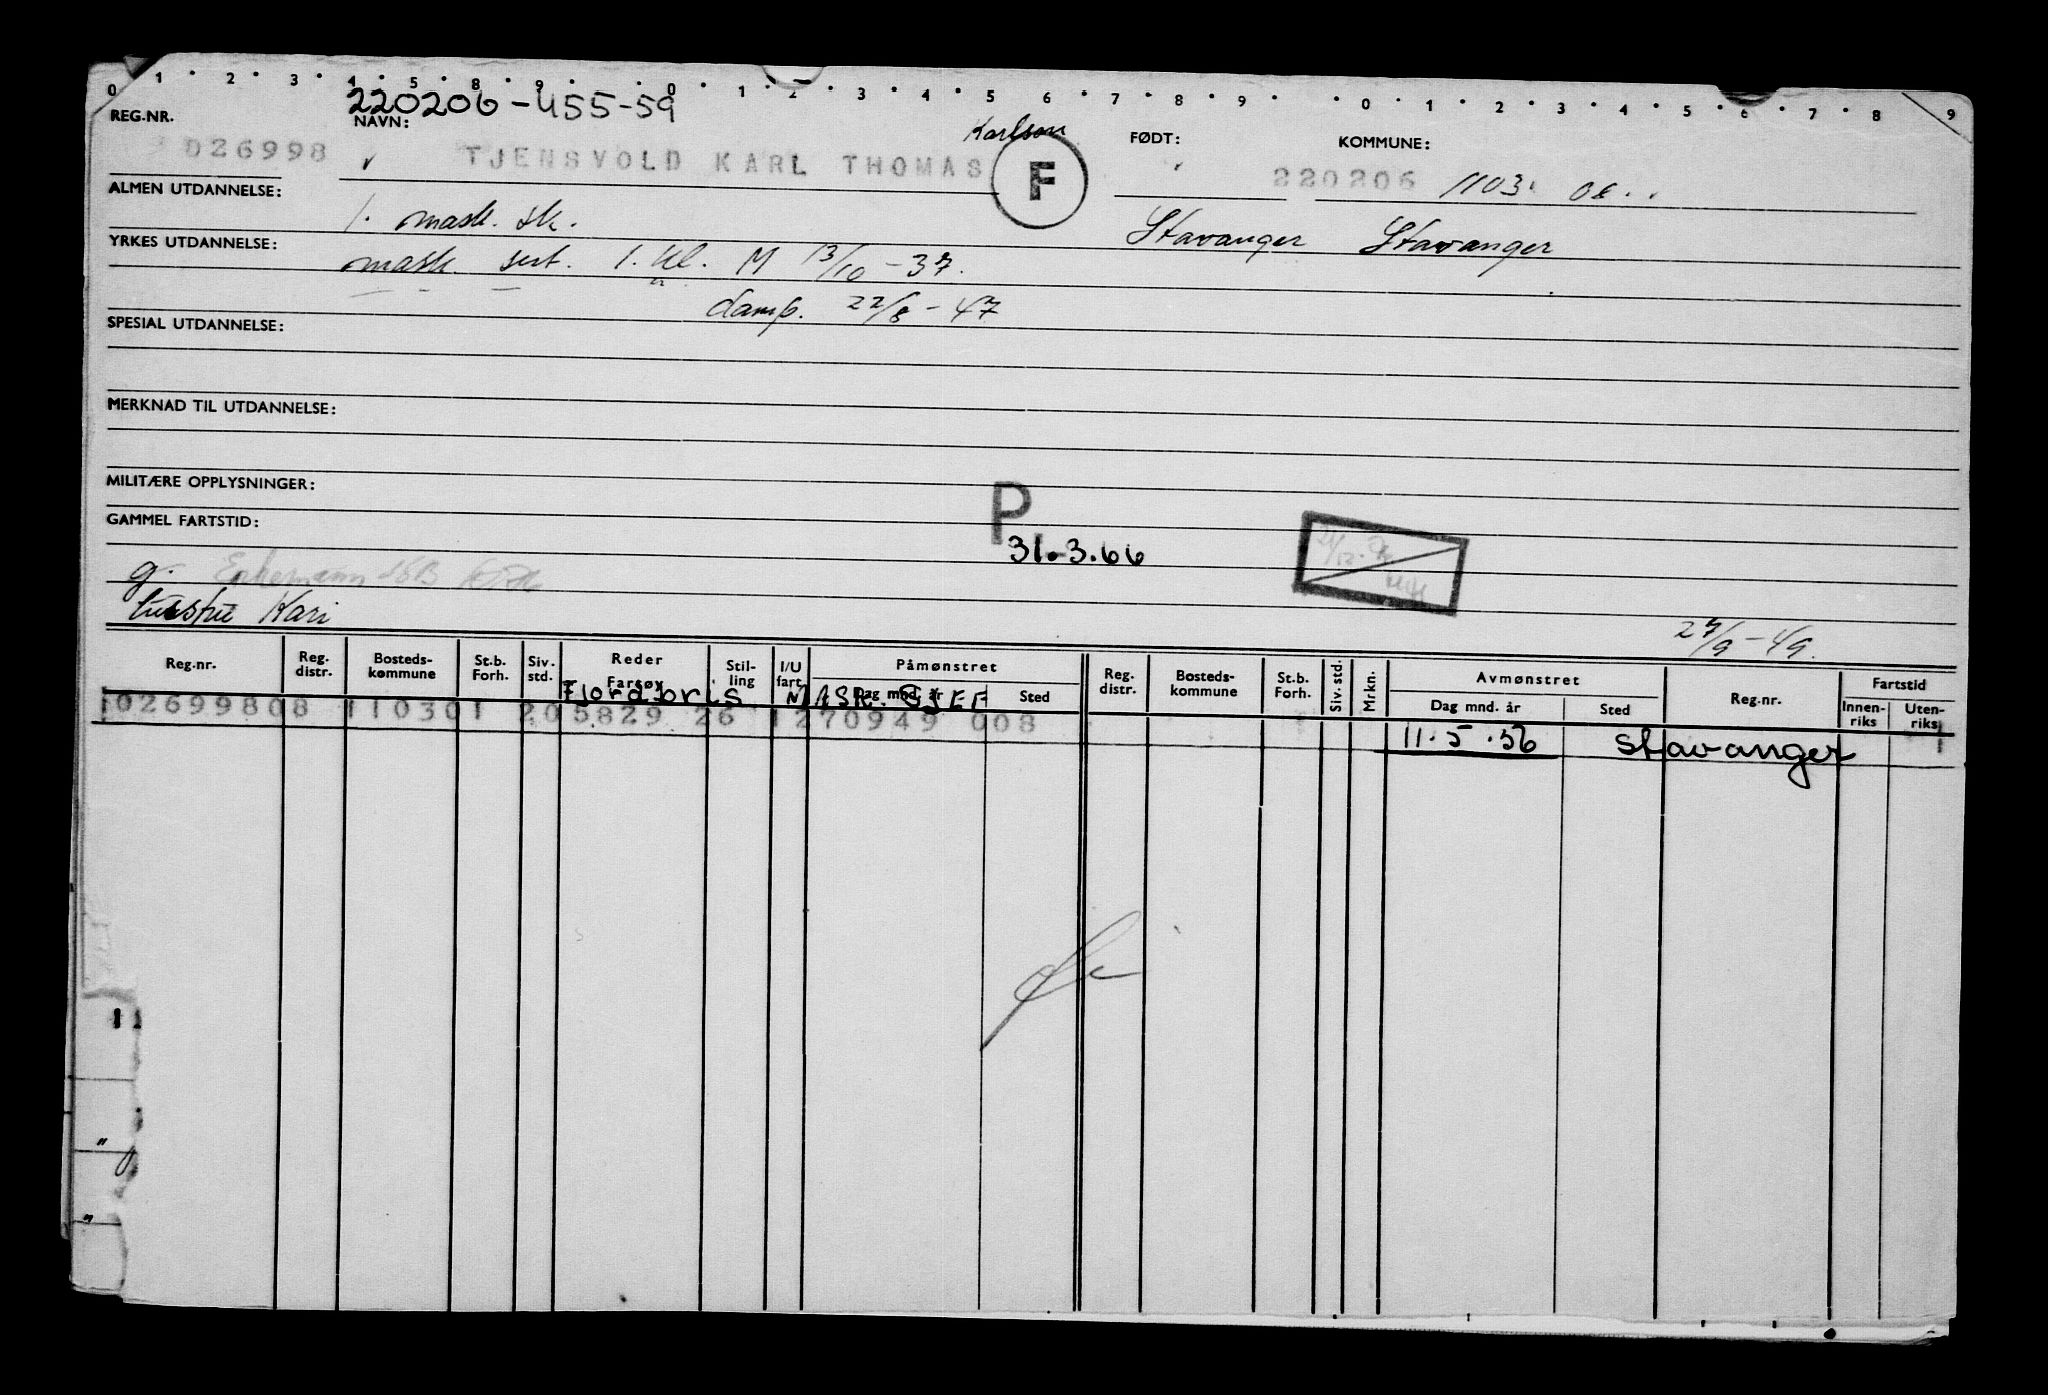 0 1 2 3 4 5 8 9 0 1 2 3 4 5 6 7 8 9 0 1 2 3 4 5 6 7 8 9
220206-455-59
REG.NR. NAVN: Karlson FØDT: KOMMUNE:
026998 TJENSVOLD KARL THOMAS F 220206 1103
ALMEN UTDANNELSE: 1. mask. sk. Stavanger Stavanger
YRKES UTDANNELSE: mask. sert. 1. kl. M 13/10-37.
damp. 22/8-47
SPESIAL UTDANNELSE:
MERKNAD TIL UTDANNELSE:
MILITÆRE OPPLYSNINGER:
P
GAMMEL FARTSTID:
31.3.66
g. Enkemann
hustru Kari
27/9-49.
Reg.nr. Reg. distr. Bosteds-kommune St.b. Forh. Siv. std. Reder Fartøy Stil-ling I/U fart Påmønstret Dag mnd. år Sted Reg. distr. Bosteds-kommune St.b. Forh. Siv. std. Mrkn. Avmønstret Dag mnd. år Sted Reg.nr. Fartstid Innen-riks Uten-riks
Fjordbris MASK. SJEF
102699808 110301 205829 26 1270949 008 1
11.5.56 Stavanger